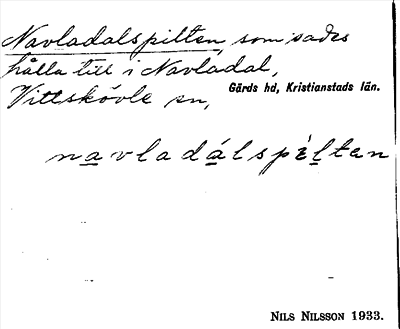 Navladalspilten, som sades
hålla till i Navladal,
Vittskövle sn,
Gärds hd, Kristianstads län.
navladálspìltan
NILS NILSSON 1933.